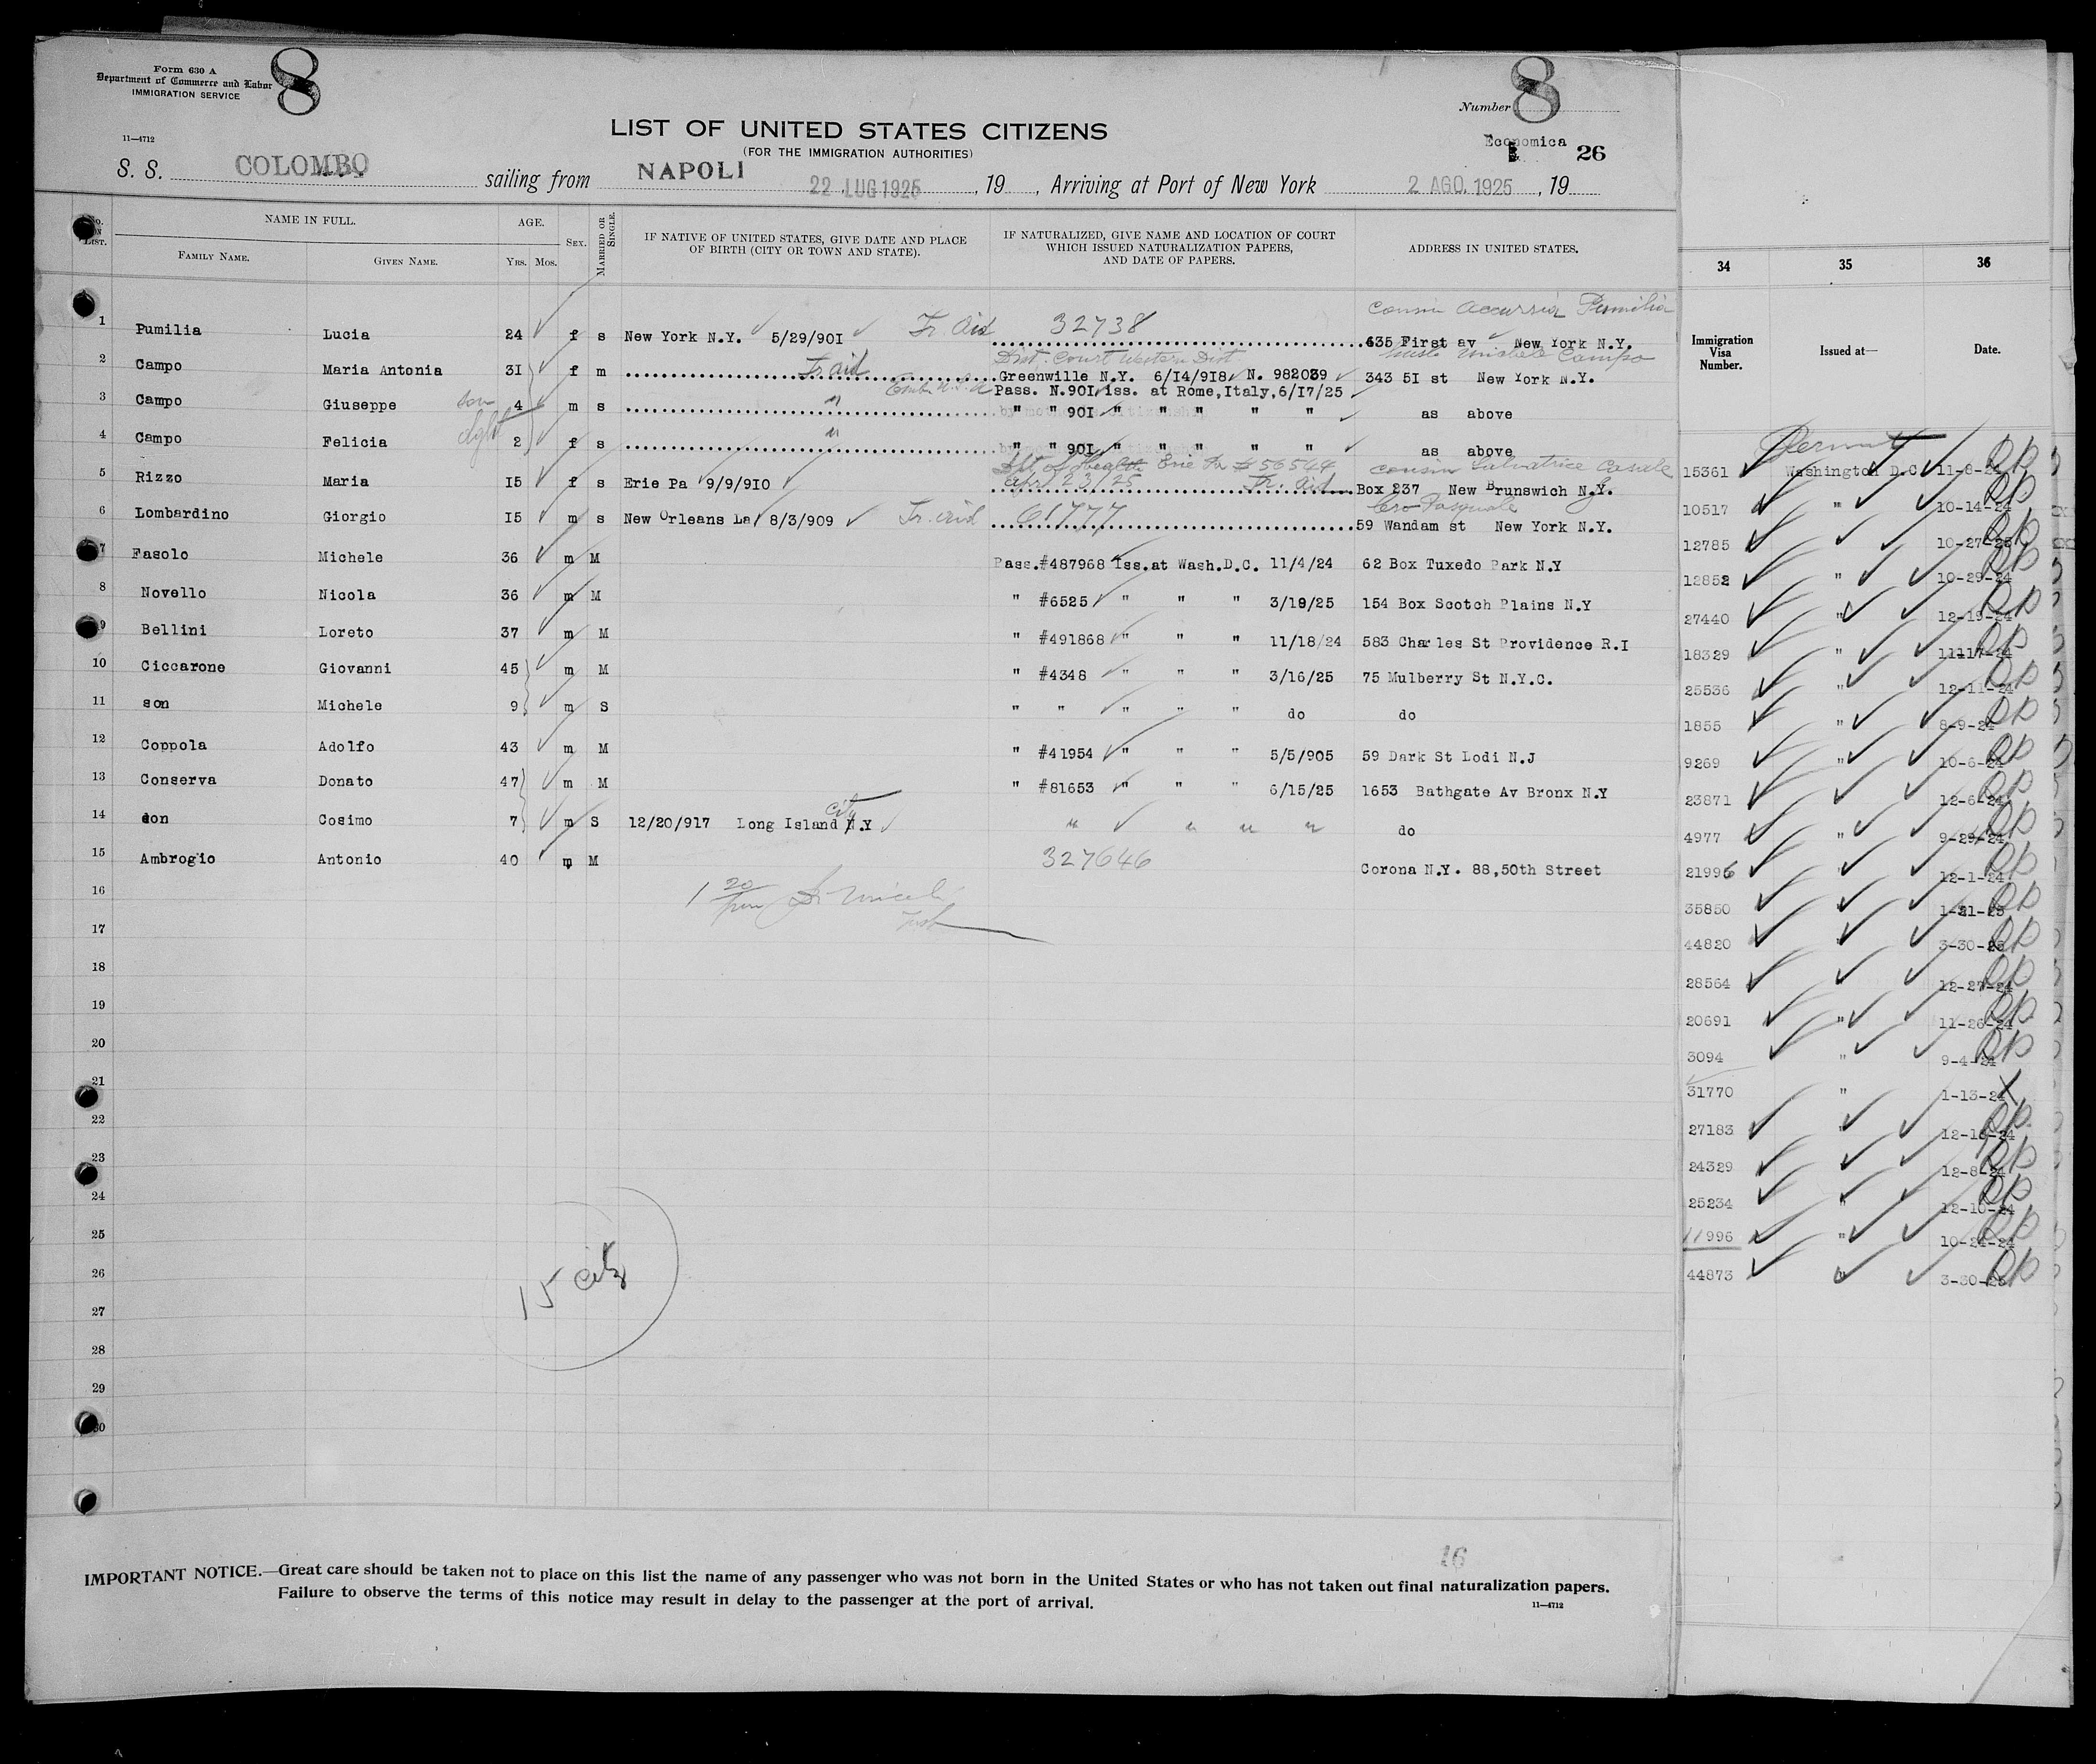 Form 630 A
Department of Commerce and Labor
IMMIGRATION SERVICE
8
11—4712
LIST OF UNITED STATES CITIZENS
(FOR THE IMMIGRATION AUTHORITIES)
Number 8
Economica
26
S. S. COLOMBO sailing from NAPOLI 22 LUG 1925, 19 , Arriving at Port of New York 2 AGO. 1925, 19
No. ON LIST.
NAME IN FULL.
FAMILY NAME.
GIVEN NAME.
AGE.
YRS. MOS.
SEX.
MARRIED OR SINGLE.
IF NATIVE OF UNITED STATES, GIVE DATE AND PLACE
OF BIRTH (CITY OR TOWN AND STATE).
IF NATURALIZED, GIVE NAME AND LOCATION OF COURT
WHICH ISSUED NATURALIZATION PAPERS,
AND DATE OF PAPERS.
ADDRESS IN UNITED STATES.
cousin Accursia Pumilia
1 Pumilia Lucia 24 f s New York N.Y. 5/29/901 Tr. Aid 32738 435 First av New York N.Y.
Dist. Court Western Dist Michele Campo
2 Campo Maria Antonia 31 f m Tr. aid Greenwille N.Y. 6/14/918 N. 982039 343 51 st New York N.Y.
Pass. N.901 iss. at Rome, Italy, 6/17/25
3 Campo Giuseppe son 4 m s " " " 901 " " " " " as above
4 Campo Felicia dght 2 f s " " " 901 " " " " " as above
Dpt. of Health Erie Pa #56544 cousin Salvatrice Casale
5 Rizzo Maria 15 f s Erie Pa 9/9/910 Apr 23/25 Tr. Aid Box 237 New Brunswich N.Y.
bro Pasquale
6 Lombardino Giorgio 15 m s New Orleans La 8/3/909 Tr. aid 61777 59 Wandam st New York N.Y.
7 Fasolo Michele 36 m M Pass.#487968 Iss.at Wash.D.C. 11/4/24 62 Box Tuxedo Park N.Y
8 Novello Nicola 36 m M " #6525 " " " 3/19/25 154 Box Scotch Plains N.Y
9 Bellini Loreto 37 m M " #491868 " " " 11/18/24 583 Charles St Providence R.I
10 Ciccarone Giovanni 45 m M " #4348 " " " 3/16/25 75 Mulberry St N.Y.C.
11 son Michele 9 m S " " " " " do do
12 Coppola Adolfo 43 m M " #41954 " " " 5/5/905 59 Dark St Lodi N.J
13 Conserva Donato 47 m M " #81653 " " " 6/15/25 1653 Bathgate Av Bronx N.Y
14 son Cosimo 7 m S 12/20/917 Long Island City N.Y " " " " do
15 Ambrogio Antonio 40 m M 327646 Corona N.Y. 88,50th Street
16
17
18
19
20
21
22
23
24
25
26
27
28
29
30
15 citz
16
IMPORTANT NOTICE.—Great care should be taken not to place on this list the name of any passenger who was not born in the United States or who has not taken out final naturalization papers.
Failure to observe the terms of this notice may result in delay to the passenger at the port of arrival.
11—4712
34 35 36
Immigration Visa Number.
Issued at—
Date.
Permit
15361 Washington D.C. 11-8-24
10517 " 10-14-24
12785 10-27-25
12852 " 10-29-24
27440 " 12-19-24
18329 " 11117-24
25536 " 12-11-24
1855 " 8-9-24
9269 " 10-6-24
23871 12-6-24
4977 " 9-29-24
21996 " 12-1-24
35850 " 1-21-25
44820 " 3-30-25
28564 12-27-24
20691 " 11-26-24
3094 " 9-4-24
31770 " 1-13-24
27183 "
24329 12-8-24
25234 " 12-10-24
11996 " 10-24-24
44873 " 3-30-25